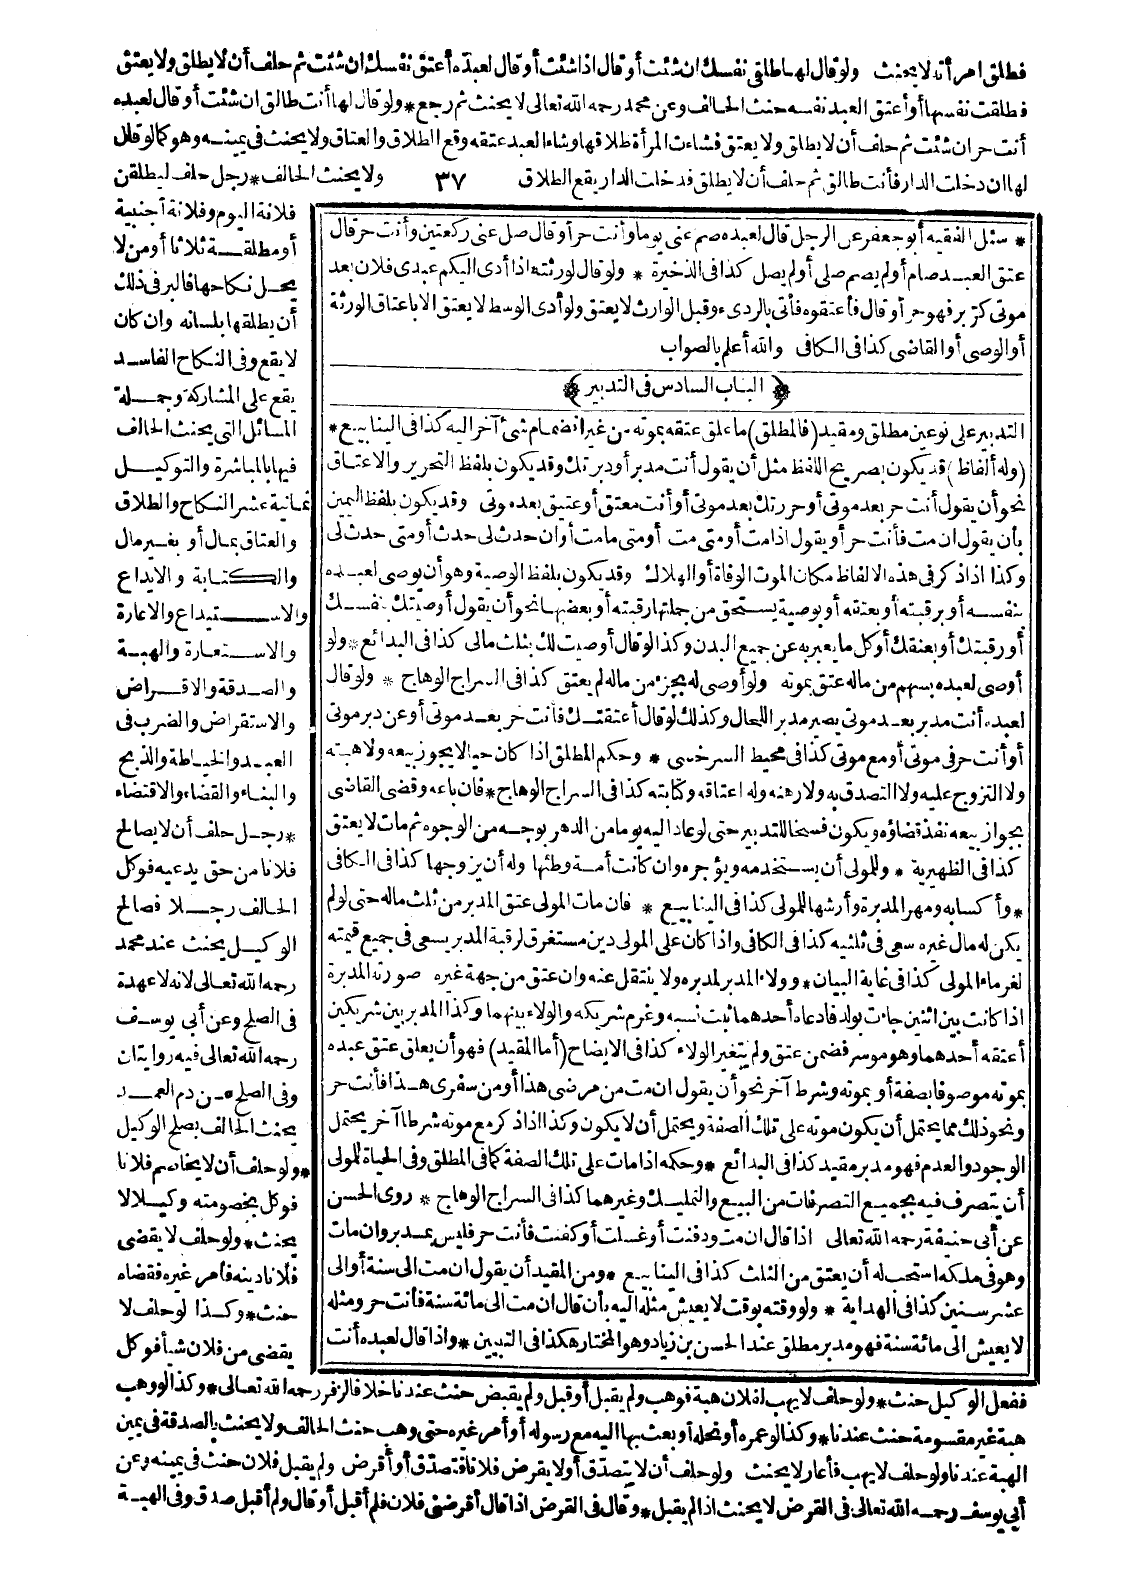 فطلق امرأته لا يحنث ولو قال لها طلقي نفسك ان شئت أو قال اذا شئت أو قال لعبده أعتق نفسك ان شئت ثم حلف أن لا يطلق ولا يعتق
فطلقت نفسها أو أعتق العبد نفسه حنث الحالف وعن محمد رحمه الله تعالى لا يحنث ثم رجع * ولو قال لها أنت طالق ان شئت أو قال لعبده
أنت حر ان شئت ثم حلف أن لا يطلق ولا يعتق فشاءت المرأة طلاقها وشاء العبد عتقه وقع الطلاق والعتاق ولا يحنث في يمينه وهو كما لو قال
لها ان دخلت الدار فأنت طالق ثم حلف أن لا يطلق فدخلت الدار يقع الطلاق ٣٧ ولا يحنث الحالف * رجل حلف ليطلقن
فلانة اليوم وفلانة أجنبية
أو مطلقة ثلاثا أو من لا
يحل نكاحها فالبر في ذلك
أن يطلقها بلسانه وان كان
لا يقع وفي النكاح الفاسد
يقع على المشاركة وجملة
المسائل التي يحنث الحالف
فيها بالمباشرة والتوكيل
ثمانية عشر النكاح والطلاق
والعتاق بمال أو بغير مال
والكتابة والايداع
والاستيداع والاعارة
والاستعارة والهبة
والصدقة والاقراض
والاستقراض والضرب في
العبد والخياطة والذبح
والبناء والقضاء والاقتضاء
* رجل حلف أن لا يصالح
فلانا من حق يدعيه فوكل
الحالف رجلا فصالح
الوكيل يحنث عند محمد
رحمه الله تعالى لانه لا عهدة
في الصلح وعن أبي يوسف
رحمه الله تعالى فيه روايتان
وفي الصلح من دم العمد
يحنث الحالف بصلح الوكيل
* ولو حلف أن لا يخاصم فلانا
فوكل بخصومته وكيلا لا
يحنث * ولو حلف لا يقضى
فلانا دينه فأمر غيره فقضاه
حنث * وكذا لو حلف لا
يقضى من فلان شيأ فوكل
* سئل الفقيه أبو جعفر عن الرجل قال لعبده صم عني يوما وأنت حر أو قال صل عني ركعتين وأنت حر قال
عتق العبد صام أو لم يصم صلى أو لم يصل كذا في الذخيرة * ولو قال لورثته اذا أدى اليكم عبدي فلان بعد
موتي كر بر فهو حر أو قال فأعتقوه فأتى بالردىء وقبل الوارث لا يعتق ولو أدى الوسط لا يعتق الا باعتاق الورثة
أو الوصى أو القاضى كذا في الكافى والله أعلم بالصواب
﴿ الباب السادس في التدبير ﴾
التدبير على نوعين مطلق ومقيد (فالمطلق) ما علق عتقه بموته من غير انضمام شئ آخر اليه كذا في الينابيع *
(وله ألفاظ) قد يكون بصريح اللفظ مثل أن يقول أنت مدبر أو دبرتك وقد يكون بلفظ التحرير والاعتاق
نحو أن يقول أنت حر بعد موتى أو حررتك بعد موتى أو أنت معتق أو عتيق بعد موتى وقد يكون بلفظ اليمين
بأن يقول ان مت فأنت حر أو يقول اذا مت أو متى مت أو متى ما مت أو ان حدث لى حدث أو متى حدث لى
وكذا اذا ذكر في هذه الالفاظ مكان الموت الوفاة أو الهلاك وقد يكون بلفظ الوصية وهو أن يوصى لعبده
بنفسه أو برقبته أو بعتقه أو بوصية يستحق من جملتها رقبته أو بعضها نحو أن يقول أوصيتك بنفسك
أو رقبتك أو بعتقك أو كل ما يعبر به عن جميع البدن وكذا لو قال أوصيت لك بثلث مالى كذا في البدائع * ولو
أوصى لعبده بسهم من ماله عتق بموته ولو أوصى له بجزء من ماله لم يعتق كذا في السراج الوهاج * ولو قال
لعبده أنت مدبر بعد موتى يصير مدبرا للحال وكذلك لو قال أعتقتك فأنت حر بعد موتى أو عن دبر موتى
أو أنت حر في موتى أو مع موتى كذا في محيط السرخسى * وحكم المطلق اذا كان حيا لا يجوز بيعه ولا هبته
ولا التزوج عليه ولا التصدق به ولا رهنه وله اعتاقه وكتابته كذا في السراج الوهاج * فان باعه وقضى القاضى
بجواز بيعه نفذ قضاؤه ويكون فسخا للتدبير حتى لو عاد اليه يوما من الدهر بوجه من الوجوه ثم مات لا يعتق
كذا في الظهيرية * وللمولى أن يستخدمه ويؤجره وان كانت أمة وطئها وله أن يزوجها كذا في الكافى
* وأكسابه ومهر المدبرة وأرشها للمولى كذا في الينابيع * فان مات المولى عتق المدبر من ثلث ماله حتى لو لم
يكن له مال غيره سعى في ثلثيه كذا في الكافى واذا كان على المولى دين مستغرق لرقبة المدبر يسعى في جميع قيمته
لغرماء المولى كذا في غاية البيان * وولاء المدبر لمدبره ولا ينتقل عنه وان عتق من جهة غيره صورته المدبرة
اذا كانت بين اثنين جاءت بولد فادعاه أحدهما ثبت نسبه وغرم شريكه والولاء بينهما وكذا المدبر بين شريكين
أعتقه أحدهما وهو موسر فضمن عتق ولم يتغير الولاء كذا في الايضاح (أما المقيد) فهو أن يعلق عتق عبده
بموته موصوفا بصفة أو بموته وشرط آخر نحو أن يقول ان مت من مرضى هذا أو من سفرى هذا فأنت حر
ونحو ذلك مما يحتمل أن يكون موته على تلك الصفة ويحتمل أن لا يكون وكذا اذا ذكر مع موته شرطا آخر يحتمل
الوجود والعدم فهو مدبر مقيد كذا في البدائع * وحكمه اذا مات على تلك الصفة كما في المطلق وفي الحياة للمولى
أن يتصرف فيه بجميع التصرفات من البيع والتمليك وغيرهما كذا في السراج الوهاج * روى الحسن
عن أبي حنيفة رحمه الله تعالى اذا قال ان مت ودفنت أو غسلت أو كفنت فأنت حر فليس بمدبر وان مات
وهو في ملكه استحب له أن يعتق من الثلث كذا في الينابيع * ومن المقيد أن يقول ان مت الى سنة أو الى
عشر سنين كذا في الهداية * ولو وقته بوقت لا يعيش مثله اليه بأن قال ان مت الى مائة سنة فأنت حر ومثله
لا يعيش الى مائة سنة فهو مدبر مطلق عند الحسن بن زياد وهو المختار هكذا في التبيين * واذا قال لعبده أنت
ففعل الوكيل حنث * ولو حلف لا يهب لفلان هبة فوهب ولم يقبل أو قبل ولم يقبض حنث عندنا خلافا لزفر رحمه الله تعالى * وكذا لو وهب
هبة غير مقسومة حنث عندنا * وكذا لو عمره أو نحله أو بعث بها اليه مع رسوله أو أمر غيره حتى وهب حنث الحالف ولا يحنث بالصدقة في يمين
الهبة عندنا ولو حلف لا يهب فأعار لا يحنث ولو حلف أن لا يتصدق أو لا يقرض فلانا فتصدق أو أقرض ولم يقبل فلان حنث في يمينه وعن
أبي يوسف رحمه الله تعالى في القرض لا يحنث اذا لم يقبل * وقال في القرض اذا قال أقرضني فلان فلم أقبل أو قال ولم أقبل صدق وفي الهبة